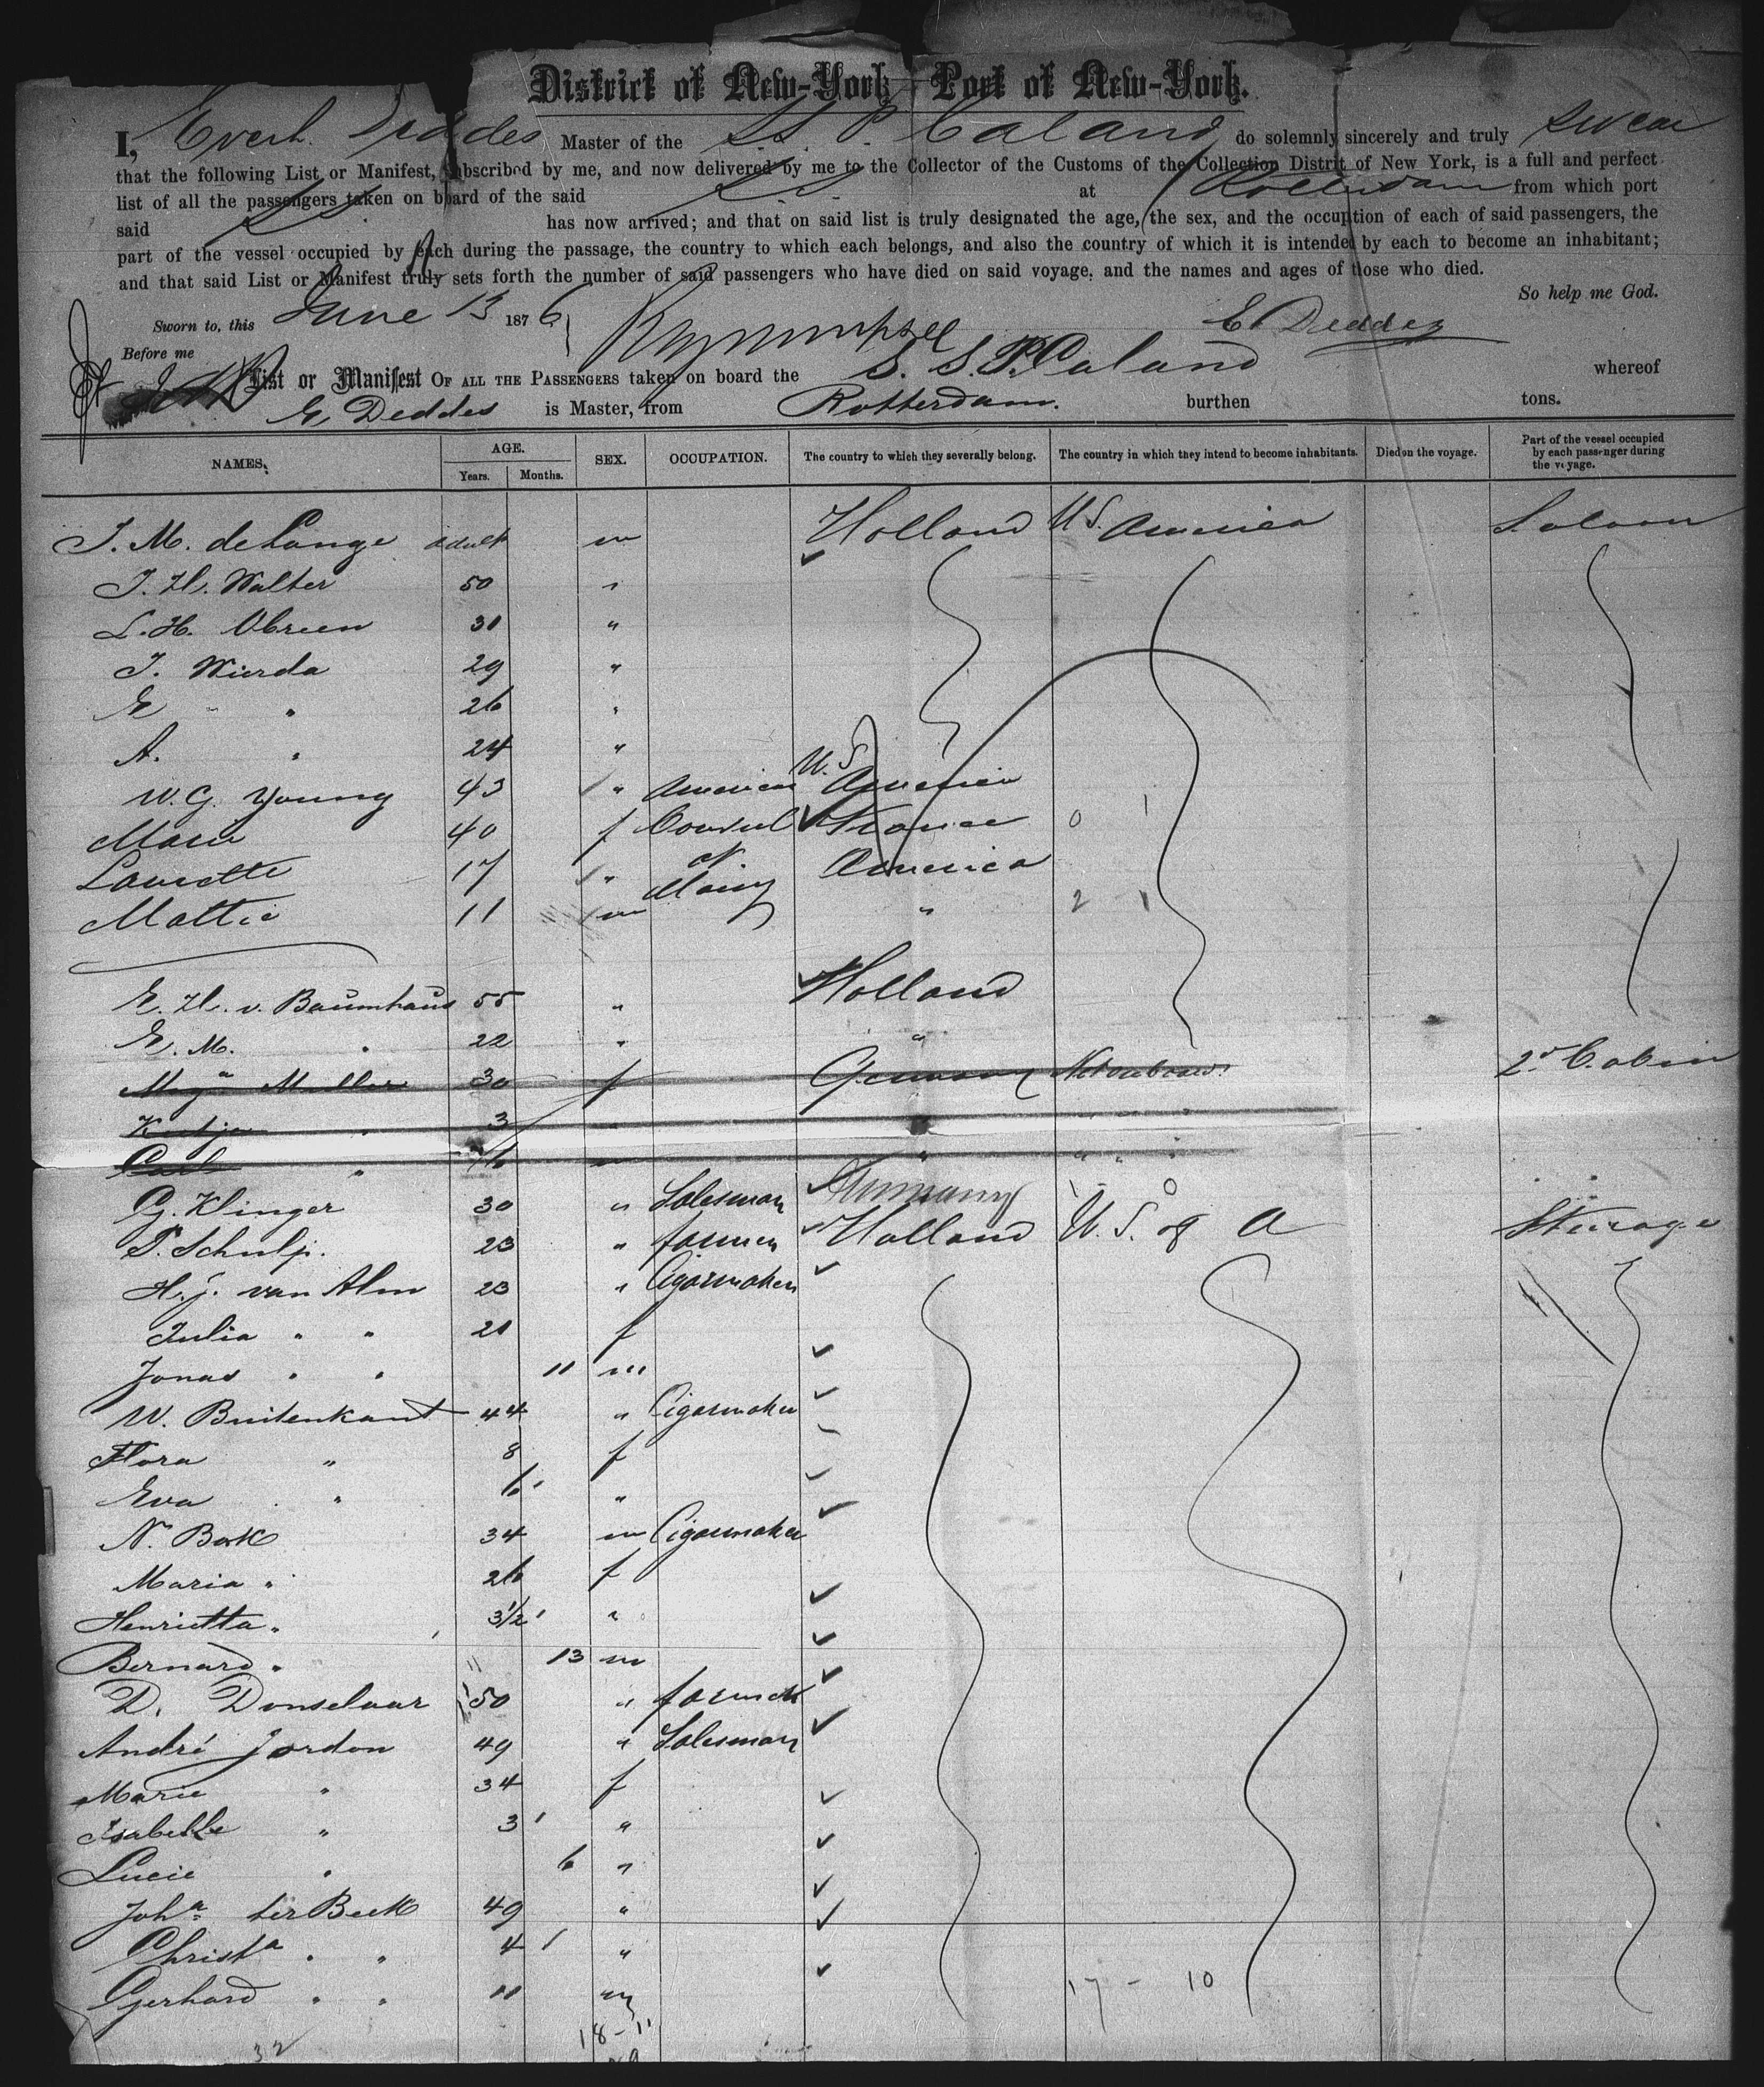 District of New-York Port of New-York.
I, Evert Deddes Master of the S.S. P. Caland do solemnly sincerely and truly swear
that the following List or Manifest, subscribed by me, and now delivered by me to the Collector of the Customs of the Collection Distrit of New York, is a full and perfect
list of all the passengers taken on board of the said S.S. at Rotterdam from which port
said S.S. has now arrived; and that on said list is truly designated the age, the sex, and the occuption of each of said passengers, the
part of the vessel occupied by each during the passage, the country to which each belongs, and also the country of which it is intended by each to become an inhabitant;
and that said List or Manifest truly sets forth the number of said passengers who have died on said voyage, and the names and ages of those who died.
So help me God.
Sworn to, this June 13 1876 E. Deddes
Before me
List or Manifest OF ALL THE PASSENGERS taken on board the S. S. P. Caland whereof
E. Deddes is Master, from Rotterdam. burthen tons.
NAMES. AGE. Years. Months. SEX. OCCUPATION. The country to which they severally belong. The country in which they intend to become inhabitants. Died on the voyage. Part of the vessel occupied by each passenger during the voyage.
J. M. de Lange adult m Holland U.S. America Saloon
J. H. Walter 50 "
L. H. Obreen 31 "
J. Wierda 29 "
E " " 26 "
A. " 24 "
W. G. Young 43 " American U.S. America
Marie 40 f Consul France 0 1
Laurette 17 " America
Mattie 11 m " 2 1
E. H. v. Baumhaus 55 " Holland
E. M. " 22 " "
Muller 30 f Germany Not on board 2d Cabin
Katja " 3 " " " "
Carl " m " " " "
G. Klinger 30 " Salesman Germany 0
P. Schulp. 23 " farmer Holland U. S. of A Steerage
H. J. van Alm 23 " Cigarmaker
Julia " " 21 f
Jonas " " 11 m
W. Buitenkant 44 " Cigarmaker
Flora " 8 f
Eva " 6 "
N. Bok 34 m Cigarmaker
Maria " 26 f
Henrietta " 3 1/2 "
Bernard " 13 m
D. Donselaar 50 " farmer
André Jordon 49 " Salesman
Marie " 34 f
Isabelle " 3 "
Lucie " 6 "
Joha ter Beek 49 "
Christa " " 4 "
Gerhard " " 11 m 17 - 10
18 - 11
32